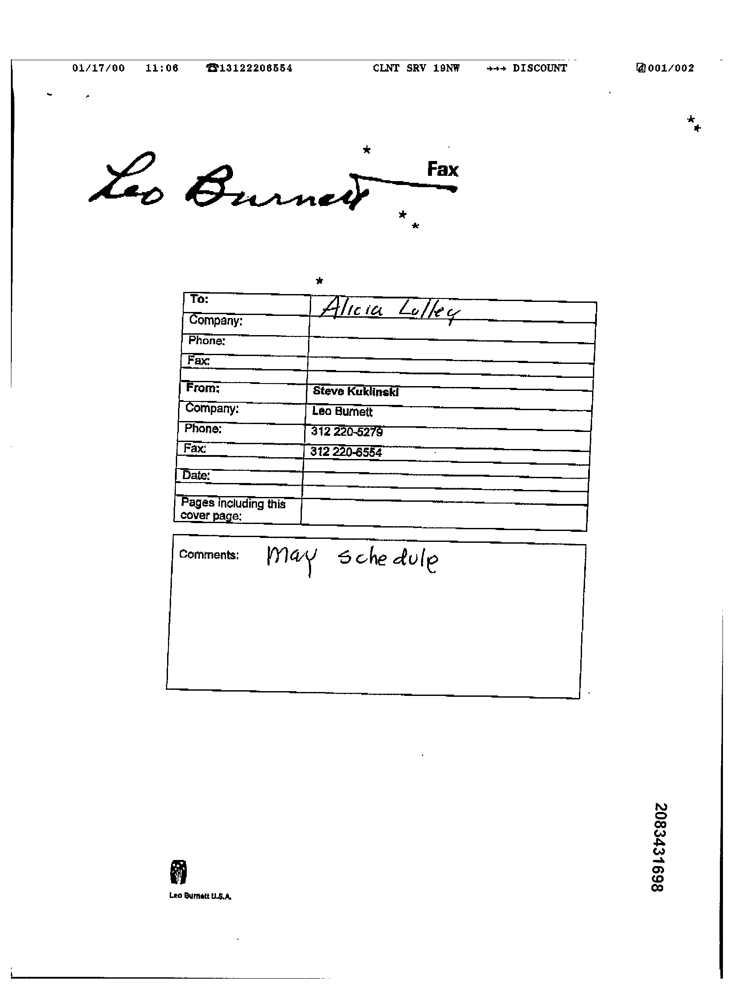 01/17/00 11:06 ☎13122206554 CLNT SRV 19NW →→→ DISCOUNT 001/002
Leo Burnett
Fax
To: Alicia Lolley
Company:
Phone:
Fax:
From: Steve Kuklinski
Company: Leo Burnett
Phone: 312 220-5279
Fax: 312 220-6554
Date:
Pages including this
cover page:
Comments: May schedule
Leo Burnett U.S.A.
2083431698